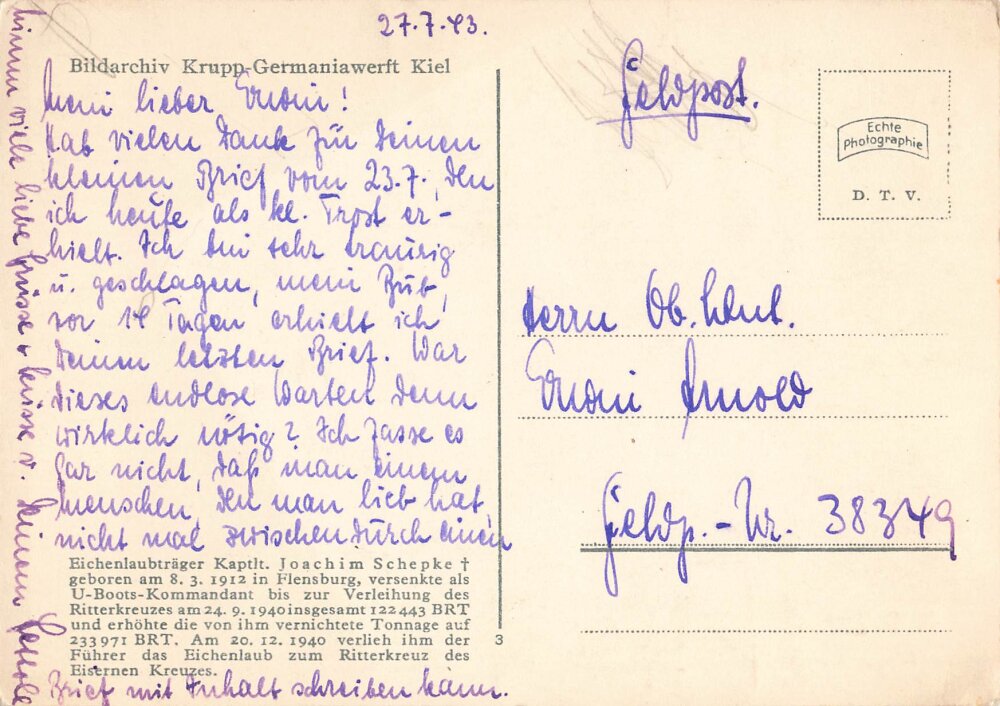 27.7.43.
Bildarchiv Krupp-Germaniawerft Kiel
Mein lieber Erwin!
Hab vielen Dank für Deinen
kleinen Brief vom 23.7., den
ich heute als kl. Trost er-
hielt. Ich bin sehr traurig
u. geschlagen, mein Bub,
vor 14 Tagen erhielt ich
Deinen letzten Brief. War
dieses endlose Warten denn
wirklich nötig? Ich fasse es
gar nicht, daß man einem
Menschen, den man lieb hat,
nicht mal zwischendurch einen
Eichenlaubträger Kaptlt. Joachim Schepke †
geboren am 8. 3. 1912 in Flensburg, versenkte als
U-Boots-Kommandant bis zur Verleihung des
Ritterkreuzes am 24. 9. 1940 insgesamt 122 443 BRT
und erhöhte die von ihm vernichtete Tonnage auf
233 971 BRT. Am 20. 12. 1940 verlieh ihm der
Führer das Eichenlaub zum Ritterkreuz des
Eisernen Kreuzes.
Brief mit Inhalt schreiben kann.
viele liebe Grüsse + Küsse v. Deinem
3
Feldpost.
Echte
Photographie
D. T. V.
Herrn Ob. Ltnt.
Erwin Arnold
Feldp.-Nr. 38349